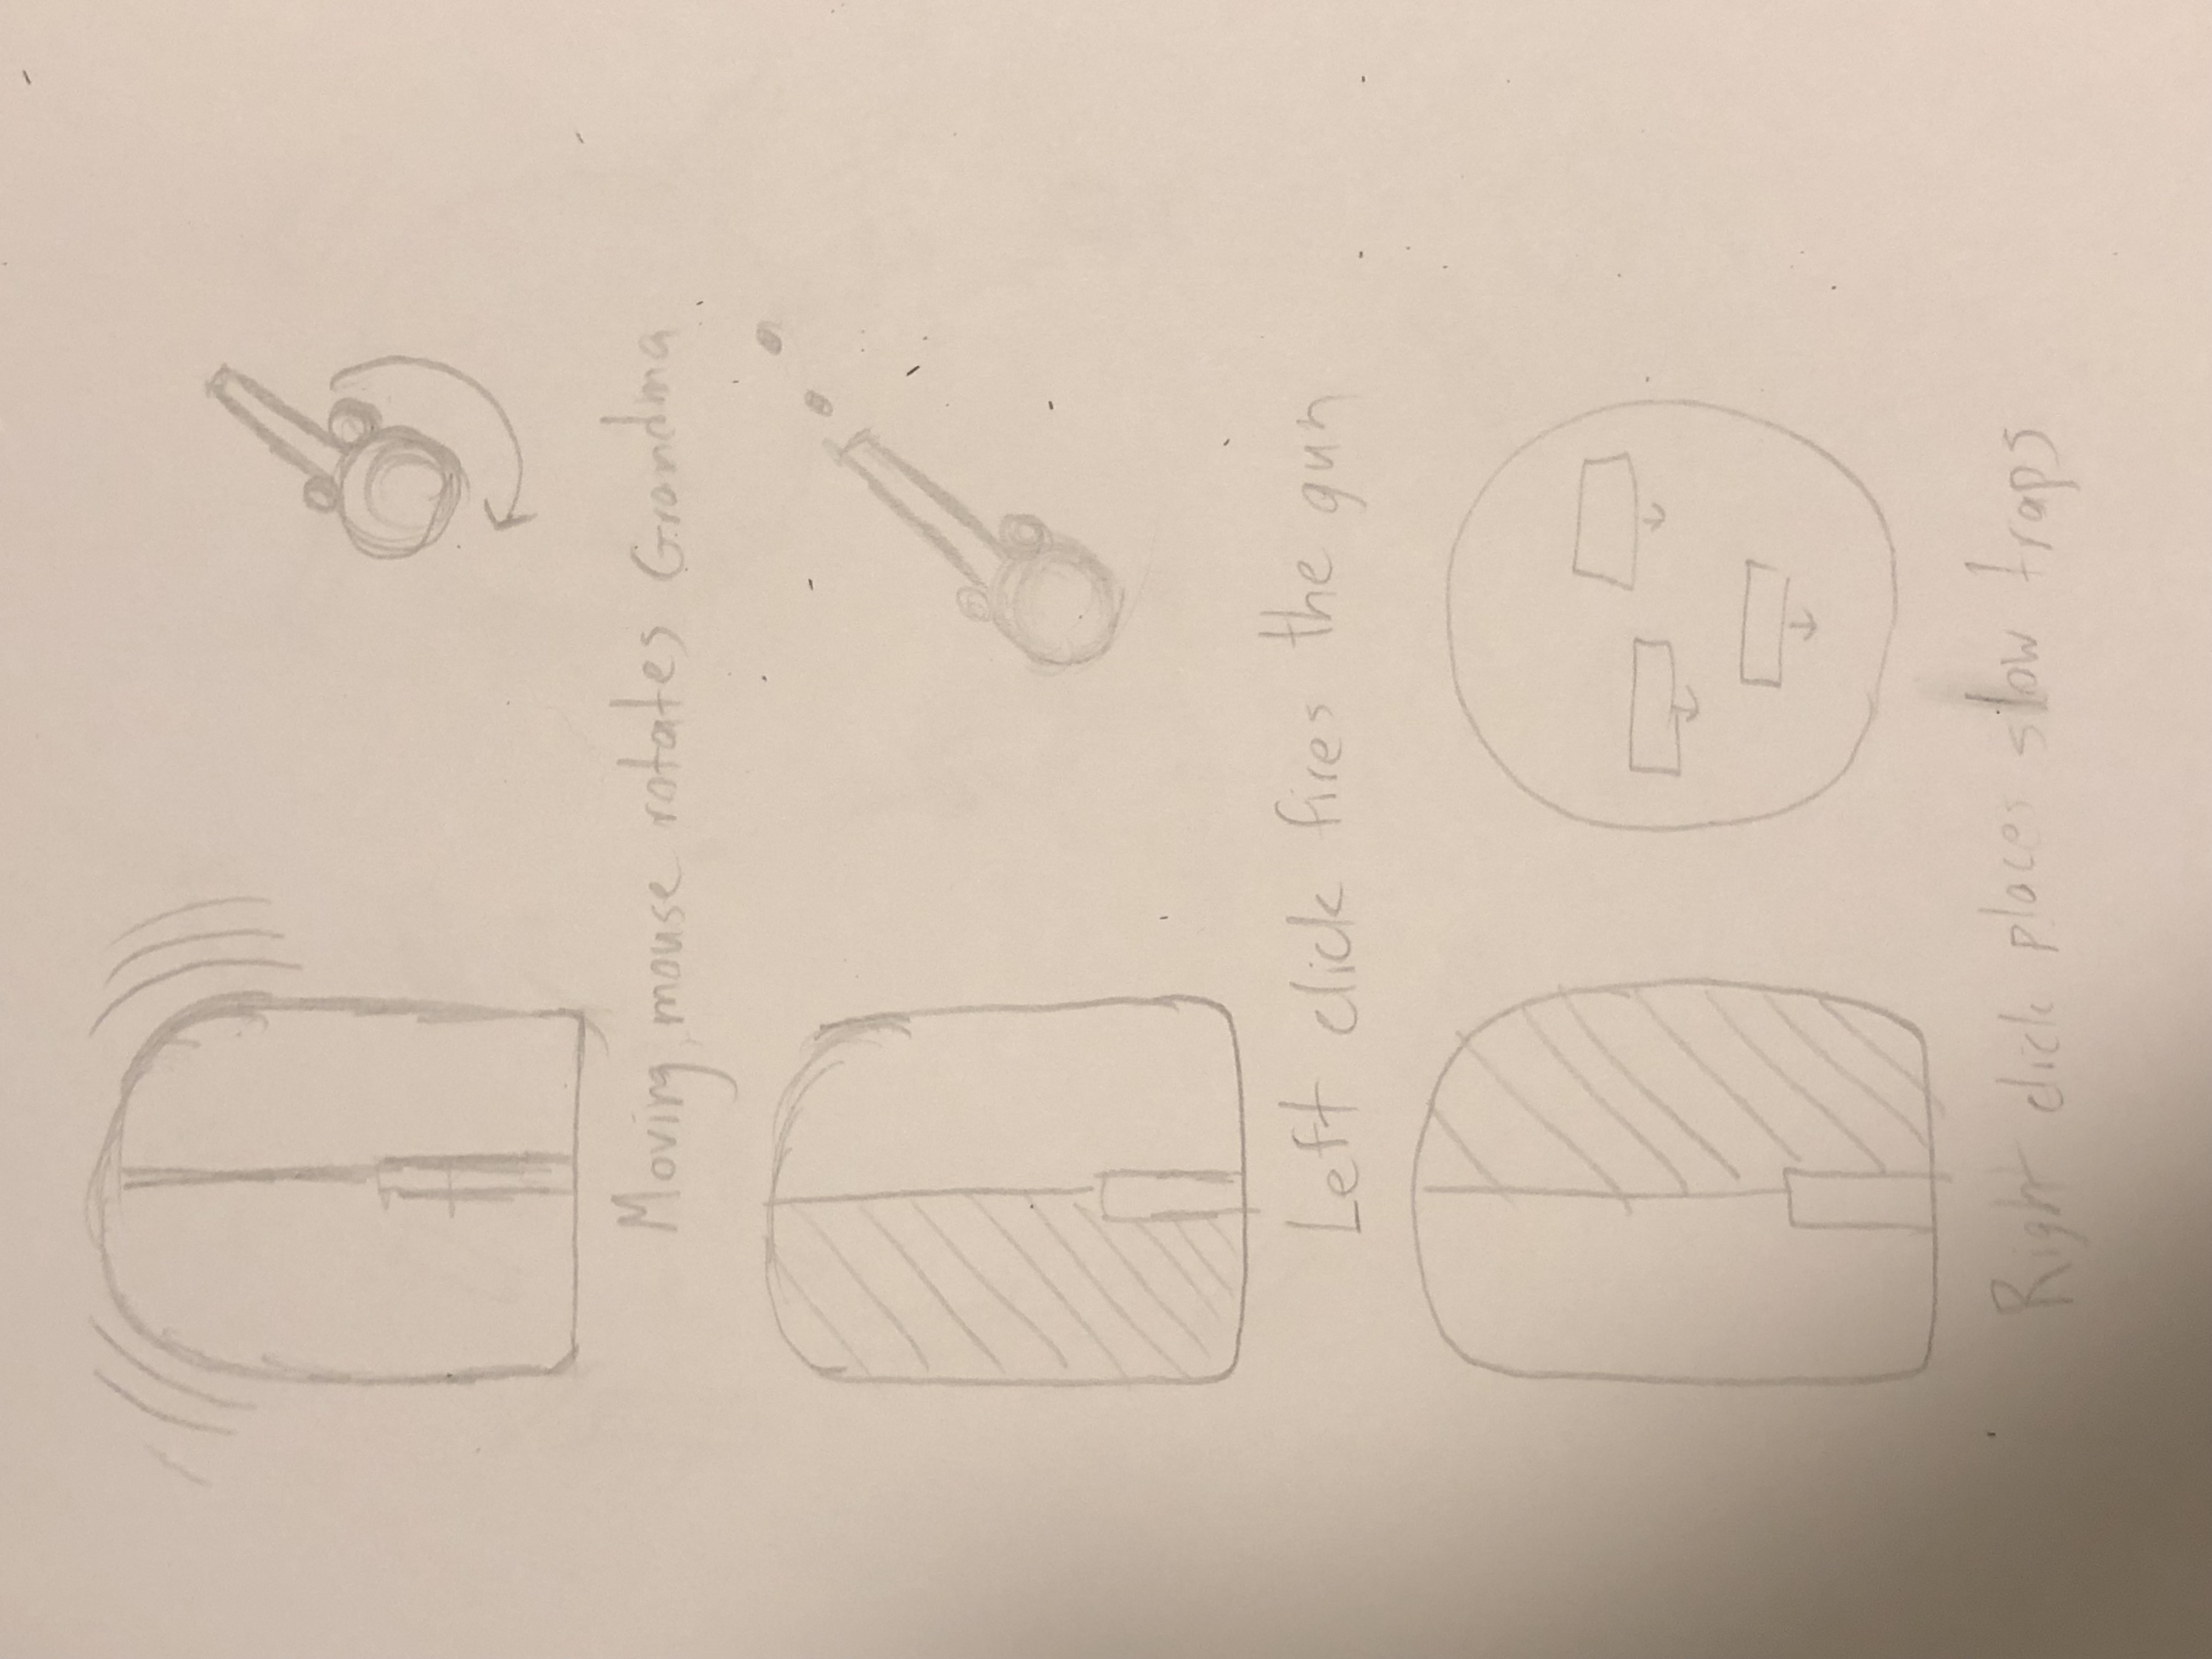 Moving mouse rotates Grandma
Left click fires the gun
Right click places slow traps